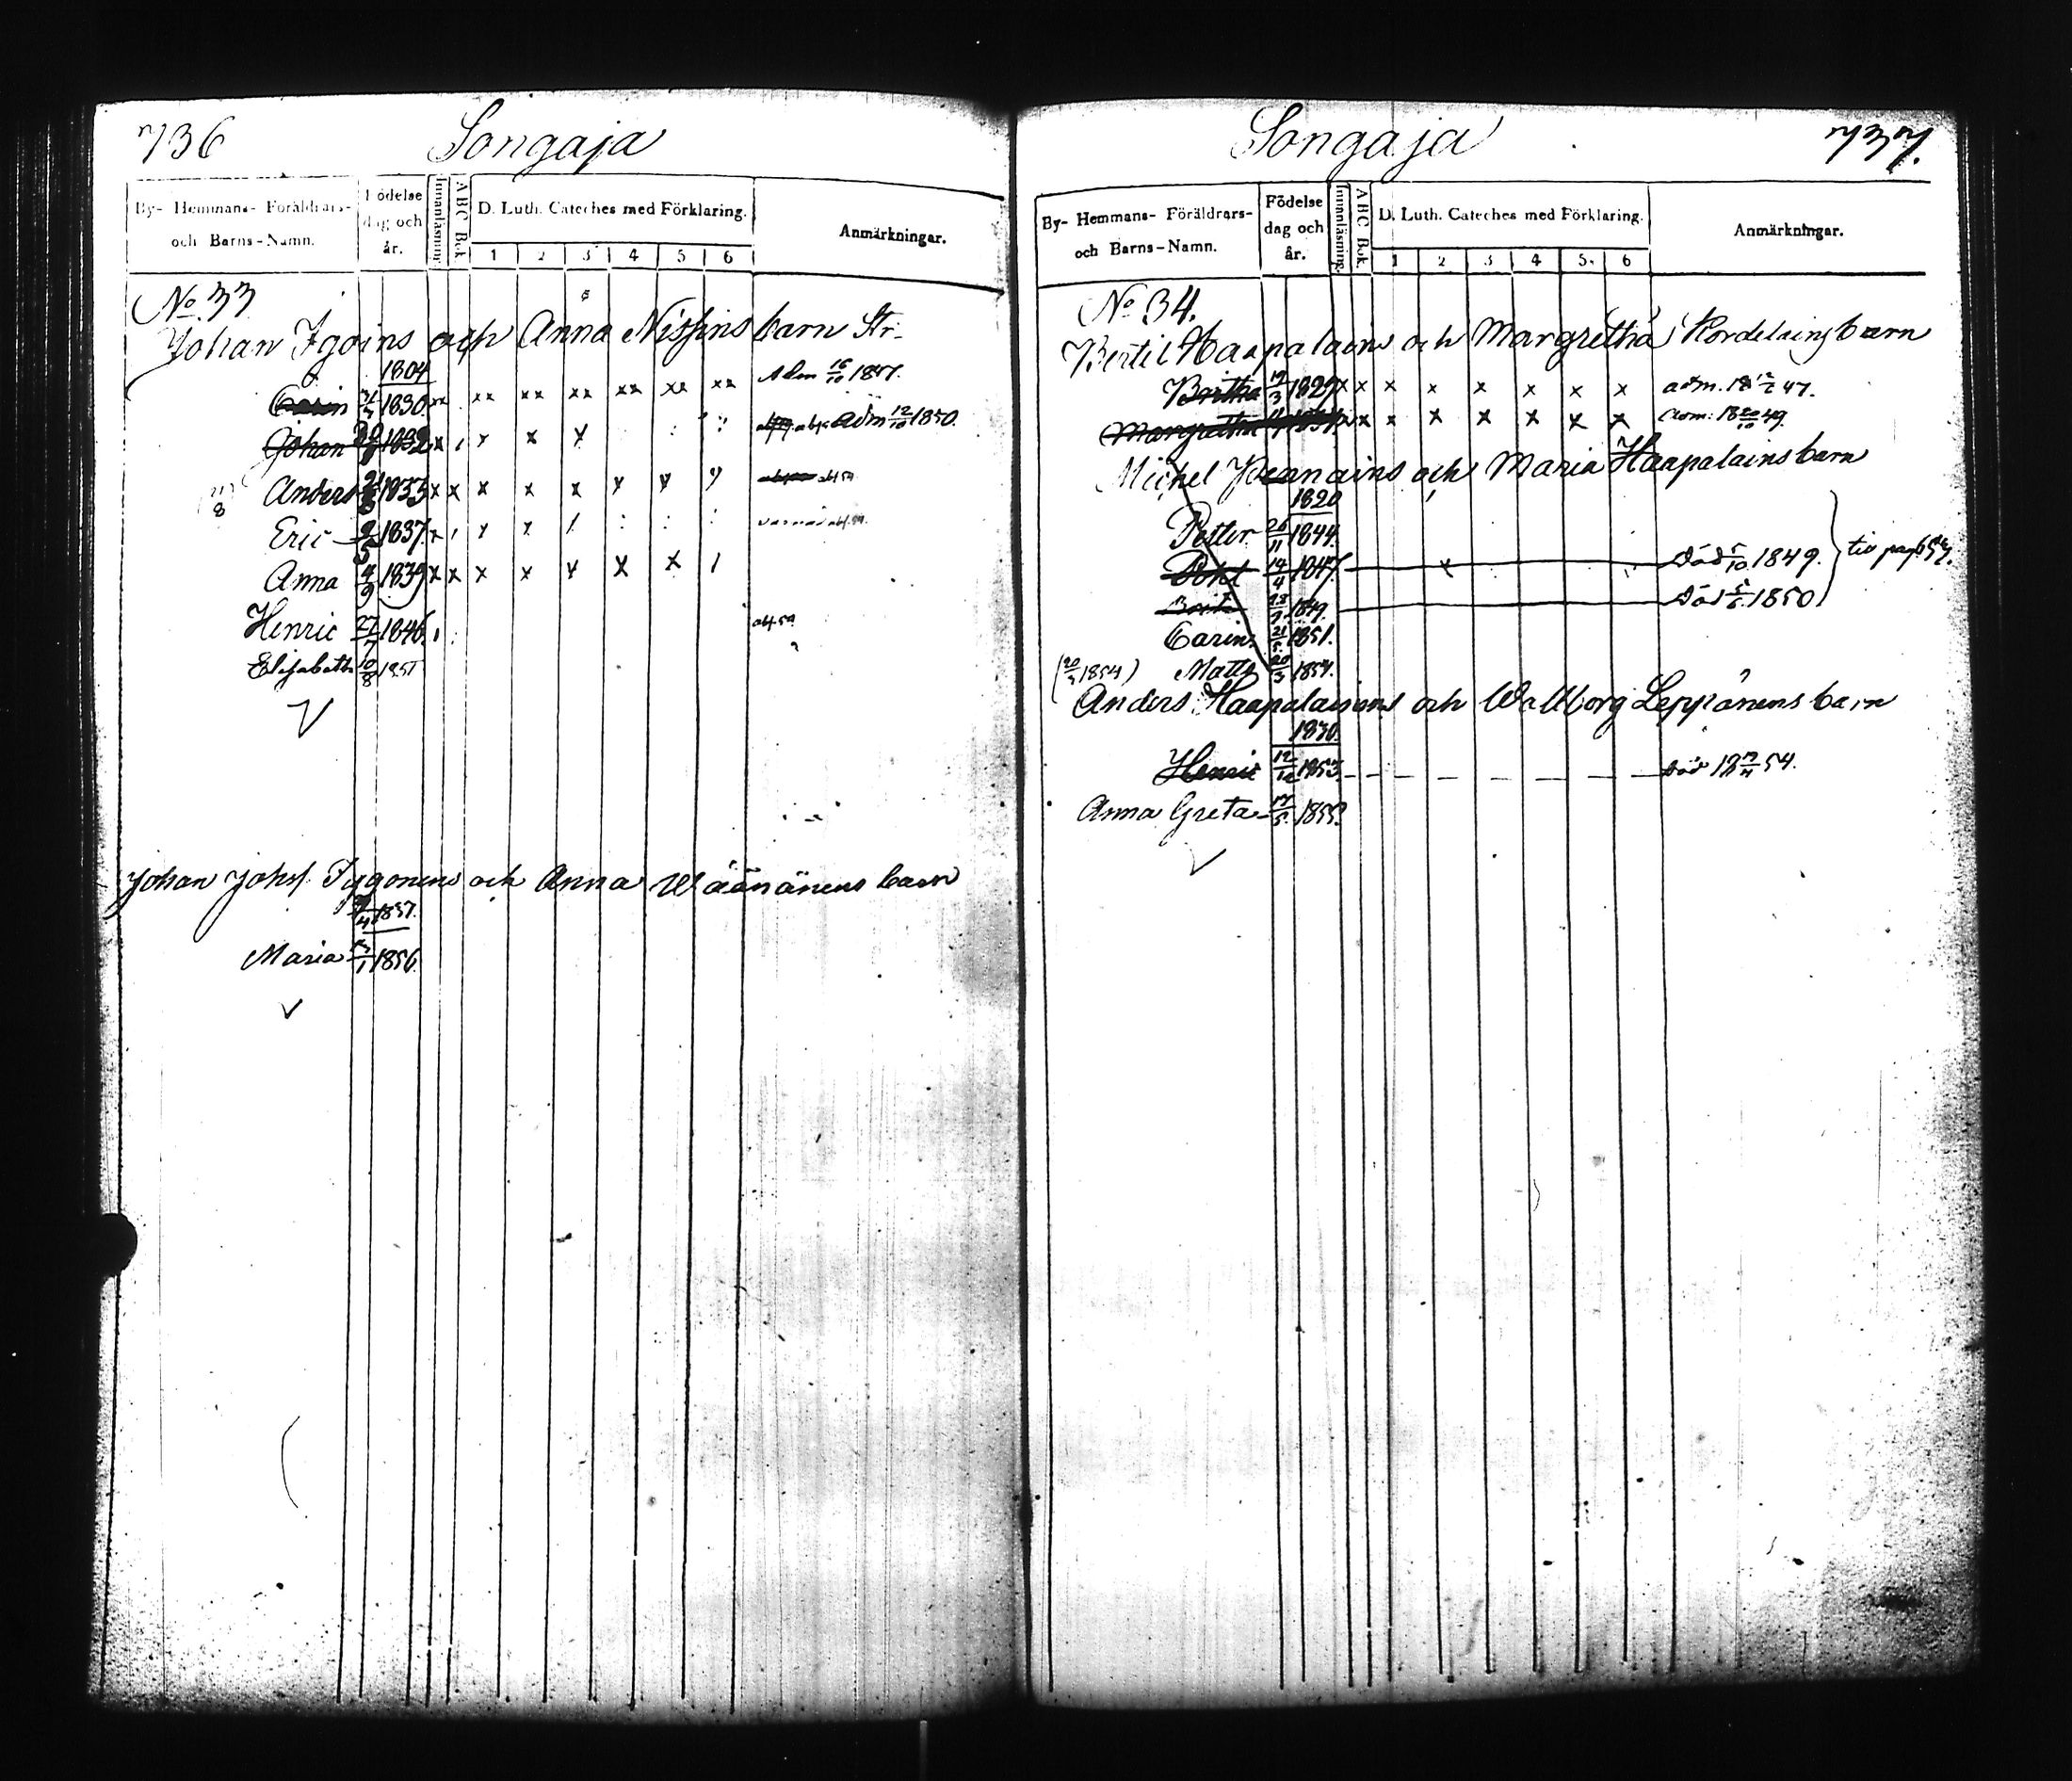 736 Songaja
By- Hemmans- Föräldrars- och Barns-Namn. Födelse dag och år. Innanläsning. ABC Bok. D. Luth. Cateches med Förklaring. 1 2 3 4 5 6 Anmärkningar.
No. 33
Johan Igoins och Anna Nissins barn Str.
1804
Carin 1830 xx xx xx xx xx xx xx Adm 16/10 1847.
Johan 1832 x x x x Adm 12/10 1850.
Anders 1833 x x x x x
Eric 1837
Anna 4/9 1839 x x x x x x x
Henric 27/7 1846
Elisabeth 10/8 1851
Johan Johss. Tygonens och Anna Wäänänens barn
1857.
Maria 1856
Songaja 737.
By- Hemmans- Föräldrars- och Barns-Namn. Födelse dag och år. Innanläsning. ABC Bok. D. Luth. Cateches med Förklaring. 1 2 3 4 5 6 Anmärkningar.
No 34.
Bertil Haapalains och Margretha Kordelains barn
Britha 19/3 1829 x x x x x x x x adm. 47.
Margretha x x x x x x x x adm: 18 20/10 49.
Michel och Maria Haapalains barn
1820
Petter 26/11 1844.
14/4 1847 Död 1849. till pag
1849. Död 1850
Carin 21/5 1851.
(20/3 1854) Matts 20/3 1854.
Anders Haapalainens och Wallborg Leppänens barn
1830.
Henric 12/12 1853 död 54.
Anna Greta 1855.